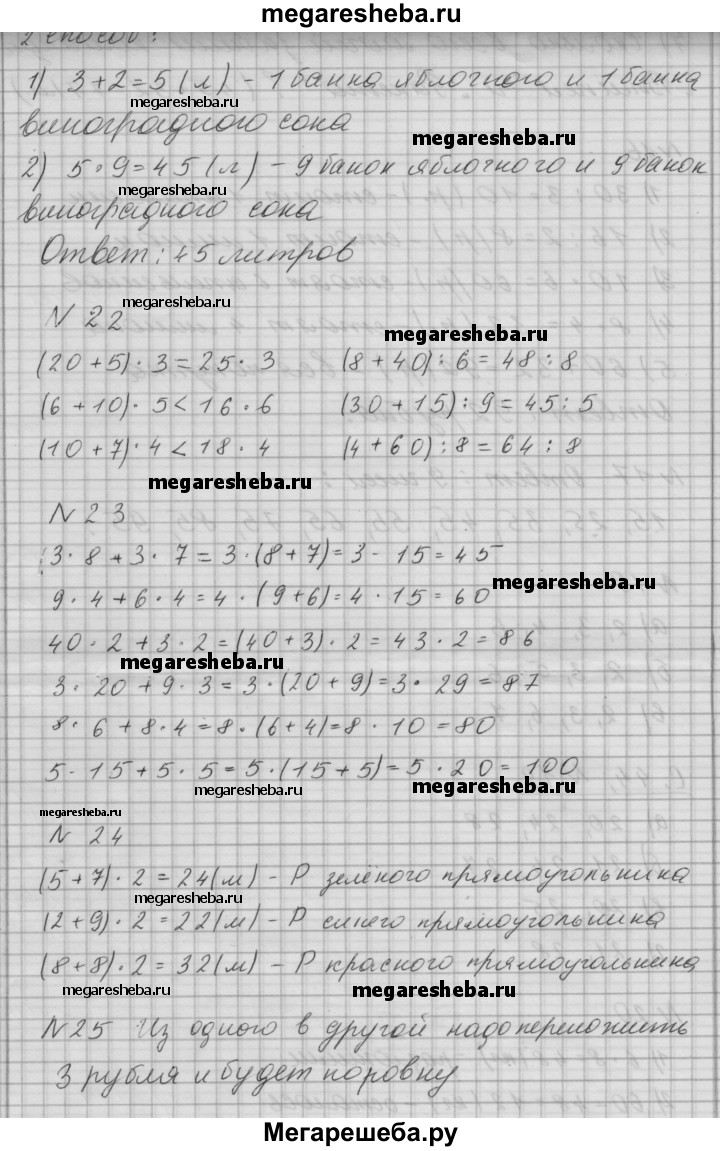 megaresheba.ru
2 способ:
1) 3+2=5(л) - 1 банка яблочного и 1 банка
megaresheba.ru
виноградного сока
megaresheba.ru
2) 5·9=45(л) - 9 банок яблочного и 9 банок
megaresheba.ru
виноградного сока
Ответ: 45 литров
megaresheba.ru
N 22
megaresheba.ru
(20+5)·3=25·3 (8+40):6=48:8
(6+10)·5<16·6 (30+15):9=45:5
(10+7)·4<18·4 (4+60):8=64:8
megaresheba.ru
N 23
3·8+3·7=3·(8+7)=3·15=45
megaresheba.ru
9·4+6·4=4·(9+6)=4·15=60
40·2+3·2=(40+3)·2=43·2=86
megaresheba.ru
3·20+9·3=3·(20+9)=3·29=87
8·6+8·4=8·(6+4)=8·10=80
5·15+5·5=5·(15+5)=5·20=100
megaresheba.ru megaresheba.ru
megaresheba.ru
N 24
(5+7)·2=24(м) - Р зелёного прямоугольника
megaresheba.ru
(2+9)·2=22(м) - Р синего прямоугольника
(8+8)·2=32(м) - Р красного прямоугольника
megaresheba.ru megaresheba.ru
N25 Из одного в другой надо переложить
3 рубля и будет поровну
megaresheba.ru megaresheba.ru
Мегарешеба.ру